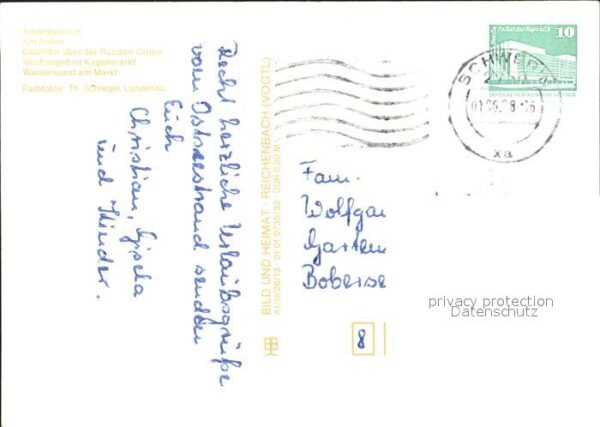 Am Hafen
Gewölbe über der Runden Grube
Neubaugebiet Kagenmarkt
Wasserkunst am Markt
Farbfotos: Th. Schlegel, Lunzenau
Recht herzliche Urlaubsgrüße
vom Ostseestrand senden
Euch
Christian, Gisela
und Kinder.
BILD UND HEIMAT · REICHENBACH (VOGTL)
DDR 0,20 M
Palast der Republik
10
SCHWERIN
xa
Fam.
Wolfgan
Garten
privacy protection
Datenschutz
8